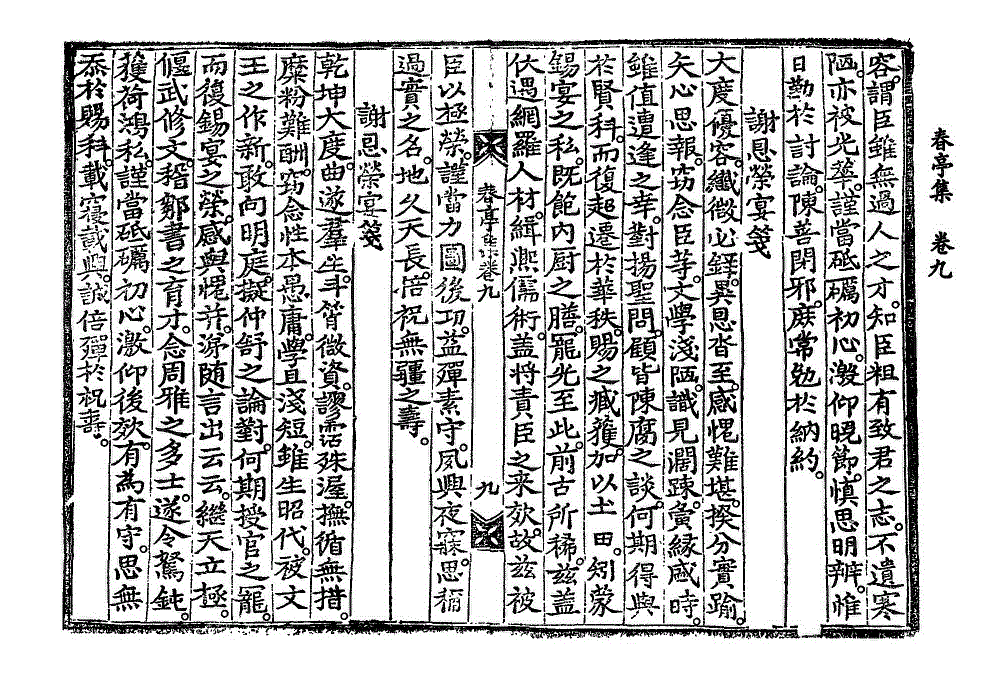 春亭集　卷九
容。謂臣雖無過人之才。知臣粗有致君之志。不遺寒
陋。亦被光華。謹當砥礪初心。激仰晚節。愼思明辨。惟
日勤於討論。陳善閉邪。庶常勉於納約。
謝恩榮宴箋
大度優容。纖微必錄。異恩沓至。感愧難堪。揆分實踰。
矢心思報。竊念臣等。文學淺陋。識見濶踈。夤緣咸時。
雖值遭逢之幸。對揚聖問。顧皆陳腐之談。何期得與
於賢科。而復超遷於華秩。賜之臧獲。加以土田。矧蒙
錫宴之私。旣飽內厨之膳。寵光至此。前古所稀。玆盖
伏遇網羅人材。緝熙儒術。盖將責臣之来效。故玆被
春亭集卷九　九
臣以極榮。謹當力圖後功。益殫素守。夙興夜寐。思稱
過實之名。地久天長。倍祝無疆之壽。
謝恩榮宴箋
乾坤大度。曲遂羣生。斗筲微資。謬霑殊渥。撫循無措。
糜粉難酬。竊念性本愚庸。學且淺短。雖生昭代。被文
王之作新。敢向明庭。擬仲舒之論對。何期授官之寵。
而復錫宴之榮。感與愧幷。涕随言出云云。繼天立極。
偃武修文。稽鄒書之育才。念周雅之多士。遂令駑鈍
獲荷鴻私。謹當砥礪初心。激仰後效。有為有守。思無
忝於賜科。載寢載興。誠倍殫於祝壽。